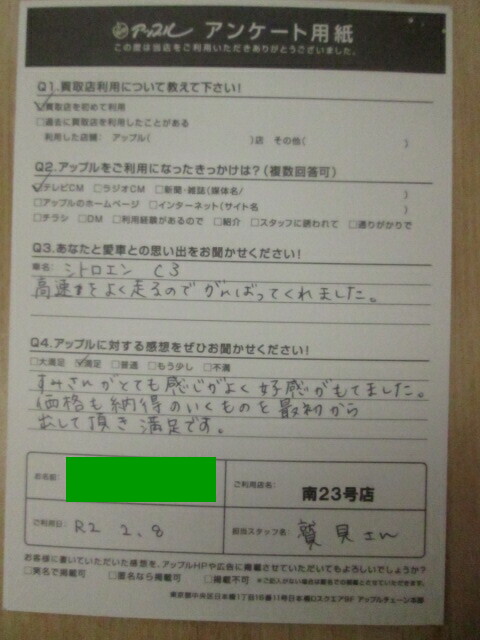 アップル アンケート用紙
この度は当店をご利用いただきありがとうございました。
Q1.買取店利用について教えて下さい!
☑買取店を初めて利用
□過去に買取店を利用したことがある
利用した店舗: アップル( )店 その他( )
Q2.アップルをご利用になったきっかけは?(複数回答可)
☑テレビCM □ラジオCM □新聞・雑誌(媒体名/ )
□アップルのホームページ □インターネット(サイト名 )
□チラシ □DM □利用経験があるので □紹介 □スタッフに誘われて □通りがかりで
Q3.あなたと愛車との思い出をお聞かせください!
車名: シトロエン C3
高速をよく走るのでがんばってくれました。
Q4.アップルに対する感想をぜひお聞かせください!
□大満足 ☑満足 □普通 □もう少し □不満
すみさんがとても感じがよく好感がもてました。
価格も納得のいくものを最初から
出して頂き満足です。
お名前:
ご利用店名: 南23号店
ご利用日: R2 2.8
担当スタッフ名: 貝さん
お客様に書いていただいた感想を、アップルHPや広告に掲載させていただいてもよろしいでしょうか?
□実名で掲載可 □匿名なら掲載可 □掲載不可 ※ご記入がない場合は匿名での掲載とさせていただきます。
東京都中央区日本橋1丁目16番11号日本橋Dスクエア8F アップルチェーン本部